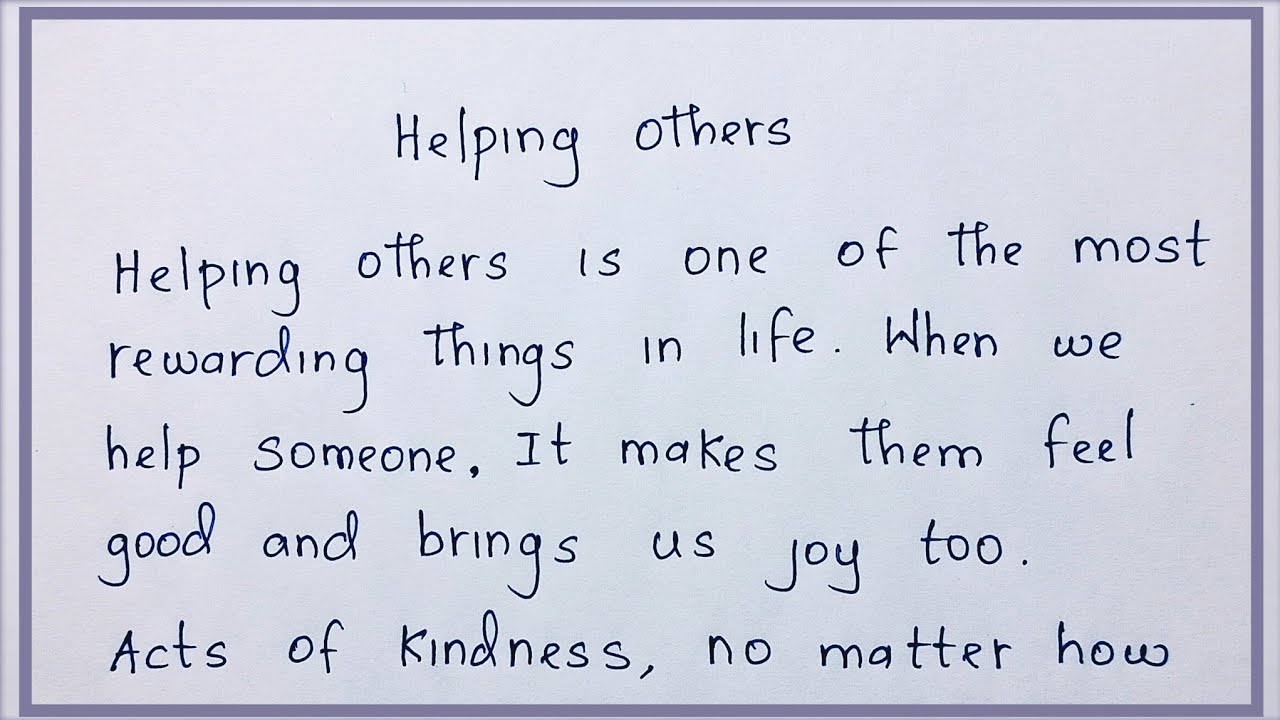 Helping others
Helping others is one of the most
rewarding things in life. When we
help someone, It makes them feel
good and brings us joy too.
Acts of kindness, no matter how